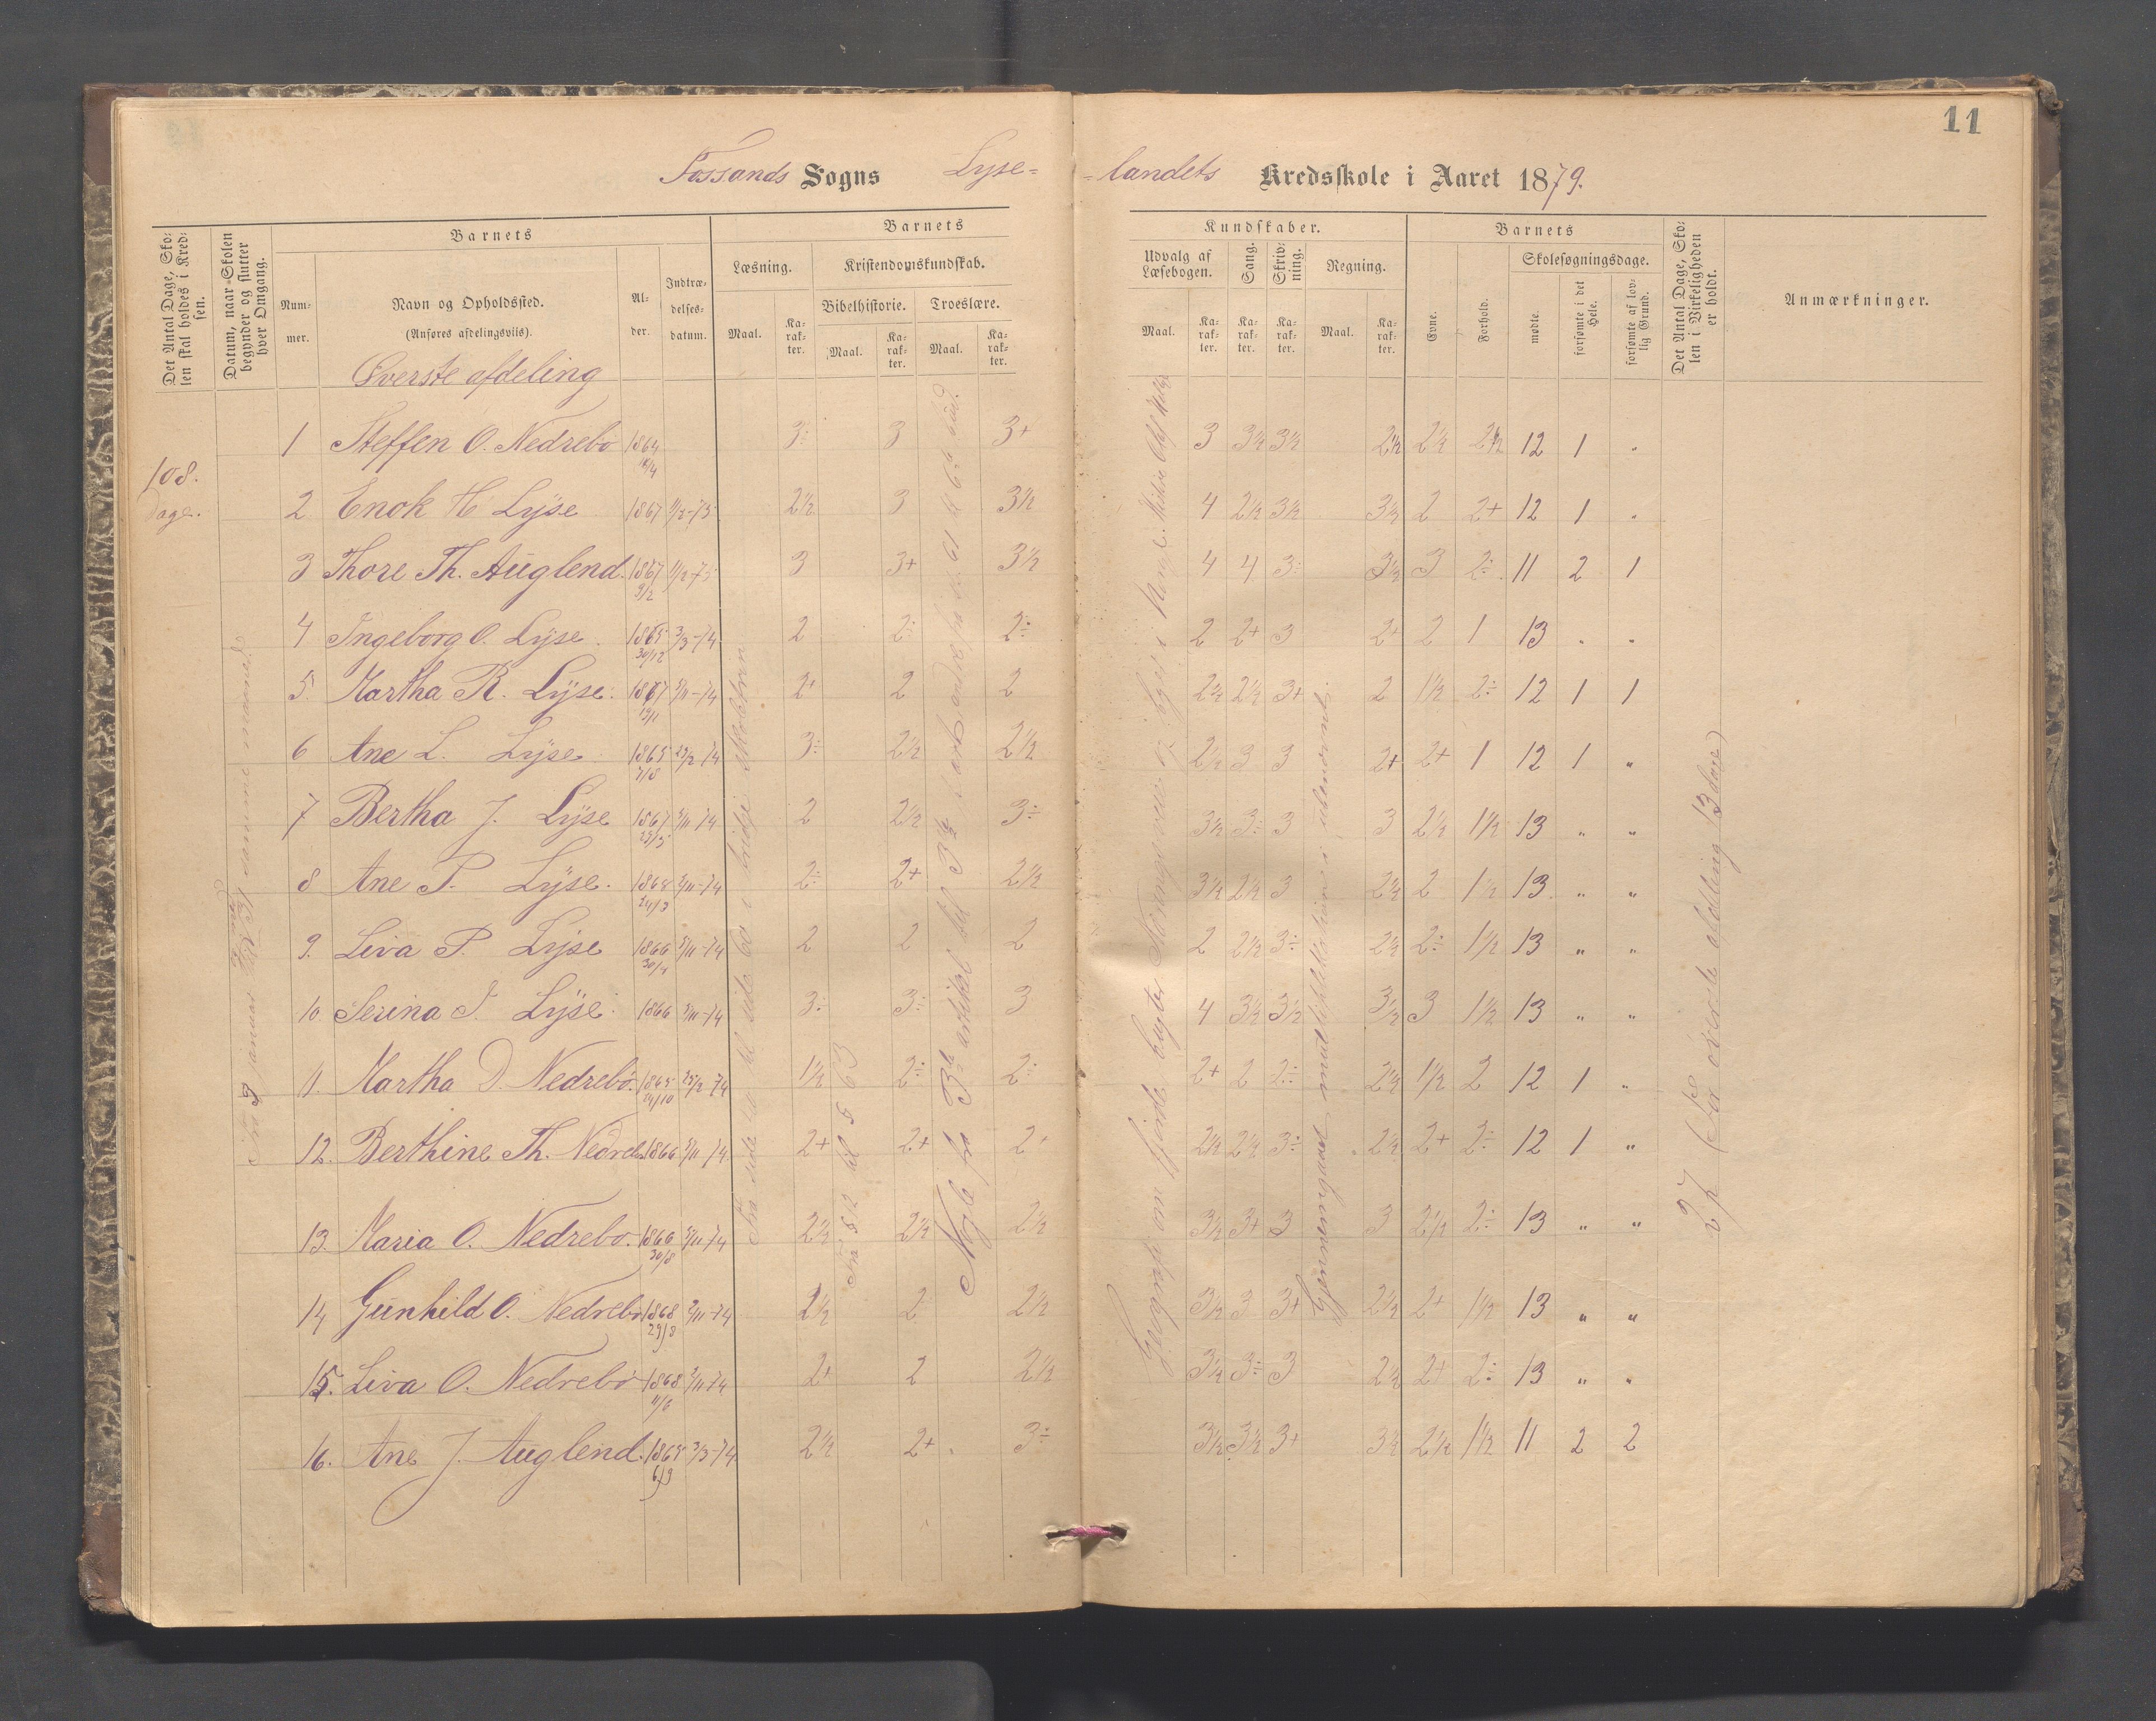 11
Fossands Sogns Lyse=
=landets Kredsskole i Aaret 1879.
Det Antal Dage, Sko-
len skal holdes i Kred-
sen.
Datum, naar Skolen
begynder og slutter
hver Omgang.
Barnets
Num-
mer.
Navn og Opholdssted.
(Anføres afdelingsvis).
Al-
der.
Indtræ-
delses-
datum.
Barnets
Læsning.
Kristendomskundskab.
Bibelhistorie. Troeslære.
Maal. Ka-
rak-
ter.
Maal. Ka-
rak-
ter.
Maal. Ka-
rak-
ter.
Kundskaber.
Udvalg af
Læsebogen.
Sang.
Skriv-
ning.
Regning.
Maal. Ka-
rak-
ter.
Ka-
rak-
ter.
Ka-
rak-
ter.
Maal. Ka-
rak-
ter.
Barnets
Evne.
Forhold.
Skolesøgningsdage.
mødte.
forsømte i det
Hele.
forsømte af lov-
lig Grund.
Det Antal Dage, Sko-
len i Virkeligheden
er holdt.
Anmærkninger.
Øverste afdeling
108.
Dage.
1 Steffen O. Nedrebo 1864 3÷ 3 3+ 3 3½ 3½ 2½ 2½ 2½ 12 1 "
2 Enok H Lyse 1867 11/2-75 2½ 3 3½ 4 2½ 3½ 3½ 2 2+ 12 1 "
3 Thore Th. Auglend. 1867 9/2 11/2-75 3 3+ 3½ 4 4 3÷ 3½ 3 2÷ 11 2 1
4 Ingeborg O. Lyse. 1865 30/12 3/3-74 2 2÷ 2÷ 2 2+ 3 2+ 2 1 13 " "
5. Martha R. Lyse. 1867 13/11 5/11-74 2+ 2 2 2½ 2½ 3+ 2 1½ 2÷ 12 1 1
6 Ane L. Lyse. 1865 7/8 25/2 74 3÷ 2½ 2½ 2½ 3 3 2+ 2+ 1 12 1 "
7 Bertha J. Lyse 1867 23/5 5/11-74 2 2½ 3÷ 3½ 3÷ 3 3 2½ 1½ 13 " "
8 Ane P. Lyse. 1868 24/3 5/11-74 2÷ 2+ 2½ 3½ 2½ 3 2½ 2 1½ 13. " "
9. Liva P. Lyse 1866 30/4 5/11-74 2 2 2 2 2½ 3÷ 2½ 2÷ 1½ 13 " "
10 Serina J. Lyse 1866 5/11-74 3÷ 3÷ 3 4 3½ 3½ 3½ 3 1½ 13 " "
11. Martha D. Nedrebö. 1865 24/10 25/2 74 1½ 2÷ 2÷ 2+ 2 2÷ 2½ 1½ 2 12 1 "
12. Berthine Th. Nedreb. 1866 5/11 74 2+ 2+ 2+ 2½ 2½ 3÷ 2½ 2+ 2÷ 12 1 "
13. Maria O. Nedrebo. 1866 30/8 5/11-74 2½ 2½ 2½ 3½ 3+ 3 3 2½ 2÷ 13 " "
14 Gunhild O. Nedrebö 1868 29/3 5/11-74 2½ 2 2½ 3½ 3 3+ 2½ 2+ 1½ 13 " "
15. Liva O. Nedrebö 1868 11/6 5/11-74 2+ 2 2½ 3½ 3÷ 3 2½ 2+ 2÷ 13 " "
16. Ane J. Auglend. 1865 6/9 3/3-74 2½ 2+ 3÷ 3½ 3½ 3+ 3½ 2½ 1½ 11 2 2
Fra 52 til 5 63
Nogle fra
Gjennemgaaet multiplikation i ubenævnte
27 (For överste afdeling 13 dage)